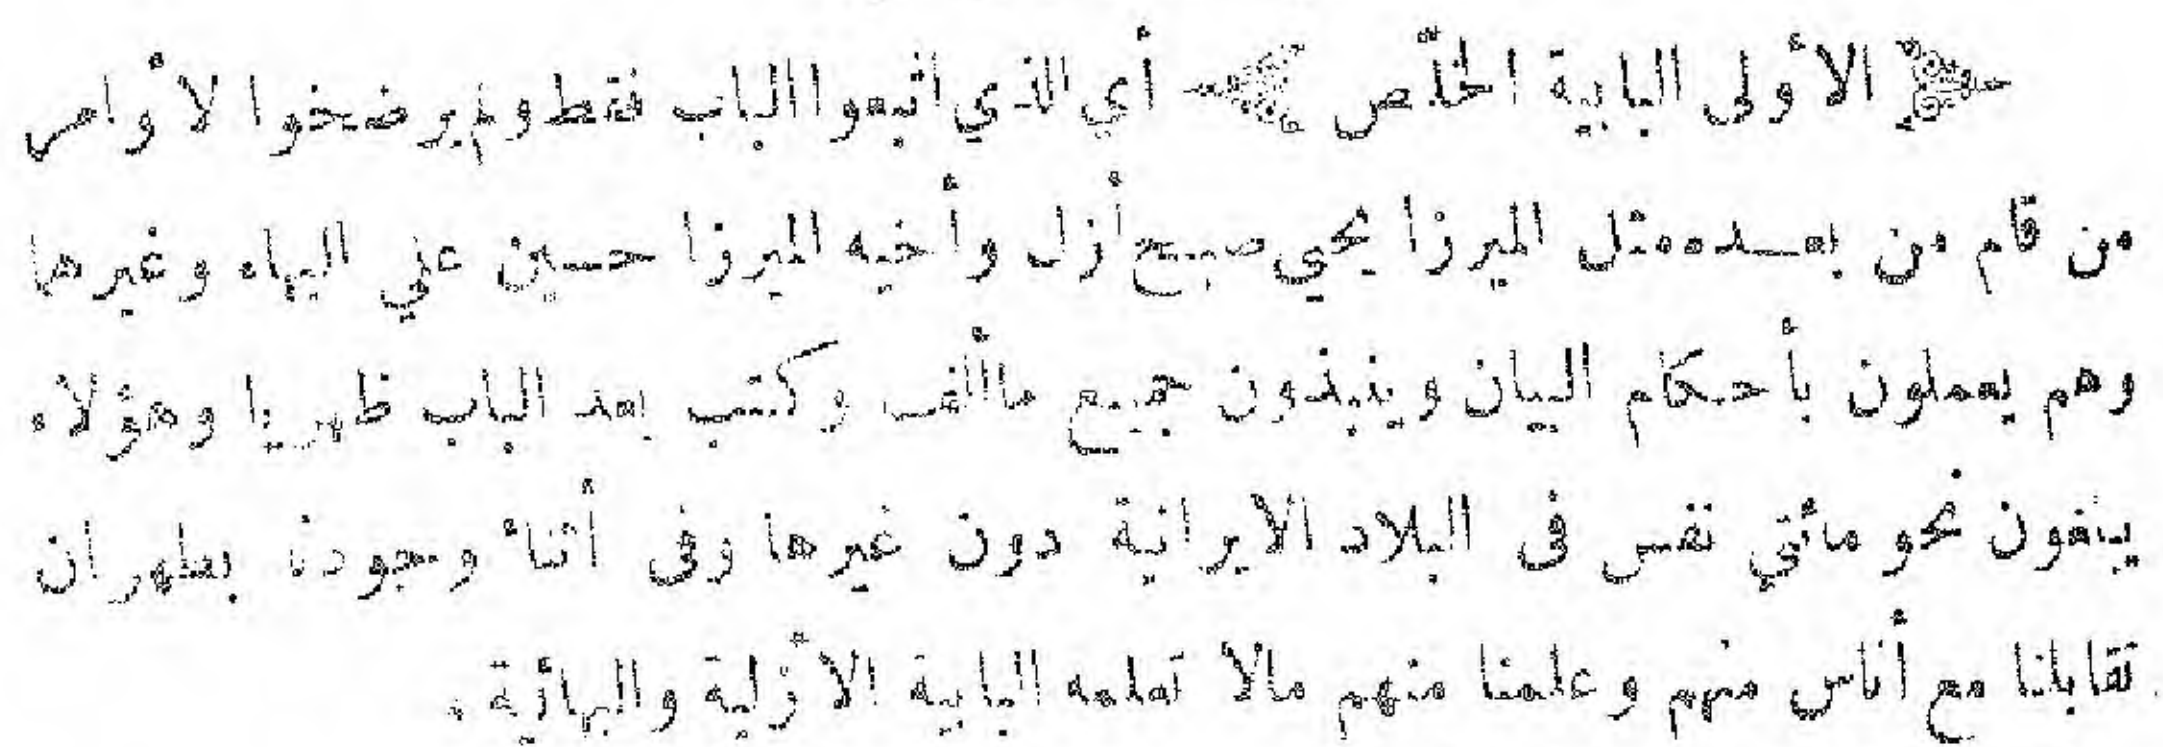 ﴿ الأولى البابية الخلّص ﴾ أي الذي اتبعوا الباب فقط ولم يرضخوا لأوامر
من قام من بعده مثل الميرزا يحيى صبح أزل وأخيه الميرزا حسين علي البهاء وغيرهما
وهم يعملون بأحكام البيان وينبذون جميع ماألف وكتب بعد الباب ظهريا وهؤلاء
ينفون نحو مائتي نفس فى البلاد الايرانية دون غيرها وفى أثناء وجودنا بطهران
تقابلنا مع أناس منهم وعلمنا منهم مالا تعلمه البابية الأزلية والبهائية .